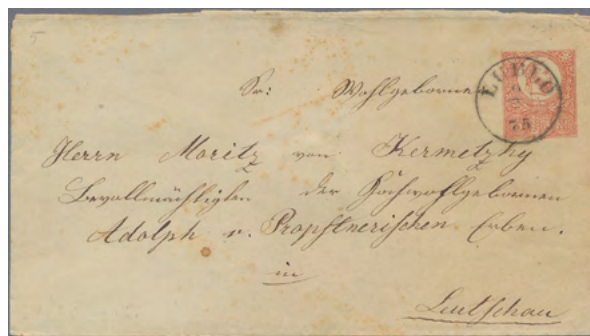 5
Sr: Wohlgebornen
LUBLO
75
Herrn Moritz von Kermetzky
Bevollmächtigten der Hochwohlgebornen
Adolph v. Propstnerischen Erben.
in
Leutschau